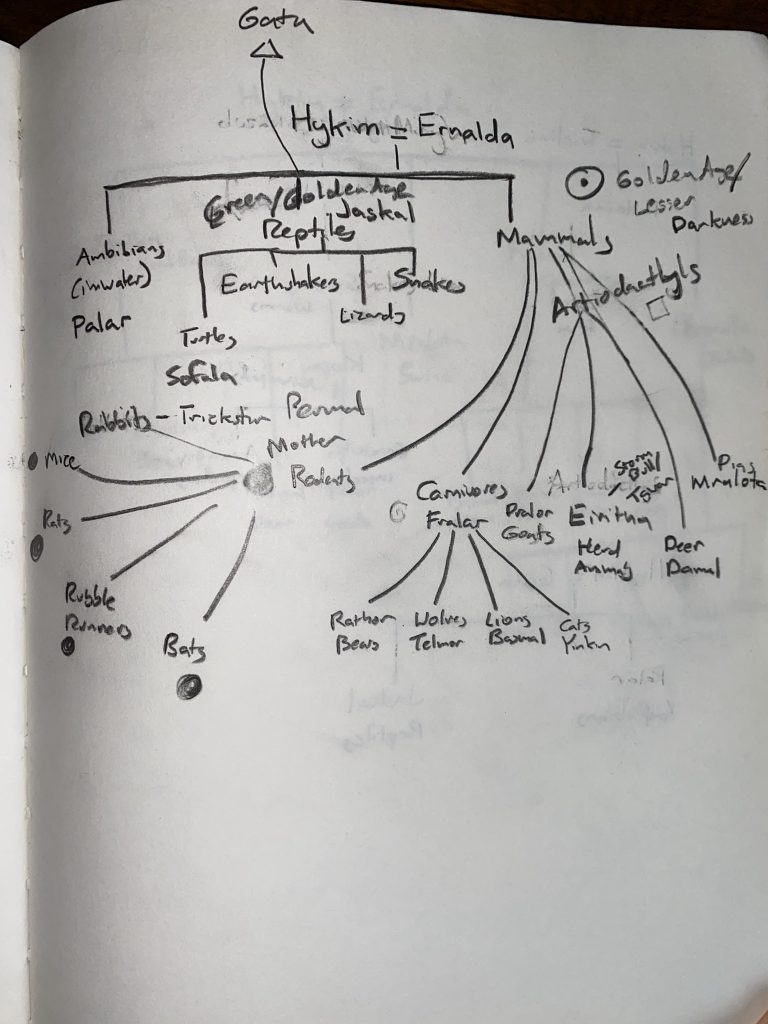 Gata
Hykim = Ernalda
Green/Golden Age
Jaskal
Reptiles
Golden Age/
Lesser
Darkness
Ambibians
(in water)
Palar
Earthshakers
Snakes
Lizards
Turtles
Sofala
Mammals
Artiodacthyls
Rabbits - Trickster
Mother
Rodents
Mice
Rats
Rubble
Runners
Bats
Carnivores
Fralar
Rathor
Bears
Wolves
Telmor
Lions
Basmal
Cats
Yinkin
Pralor
Goats
Eiritha
Herd
Animals
Storm
Bull/
Deer
Damal
Pigs
Mralota